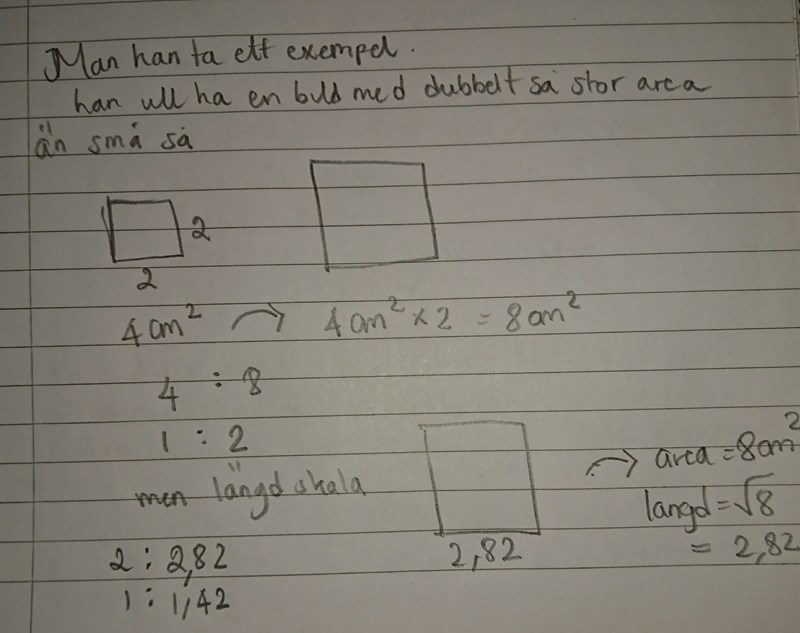 Man han ta ett exempel.
han ull ha en buld med dubbelt så stor area
än små så
2
2
4 cm² → 4 cm² × 2 = 8 cm²
4 : 8
1 : 2
men längd skala
→ area = 8 cm²
langd = √8
= 2,82
2,82
2 : 2,82
1 : 1,42